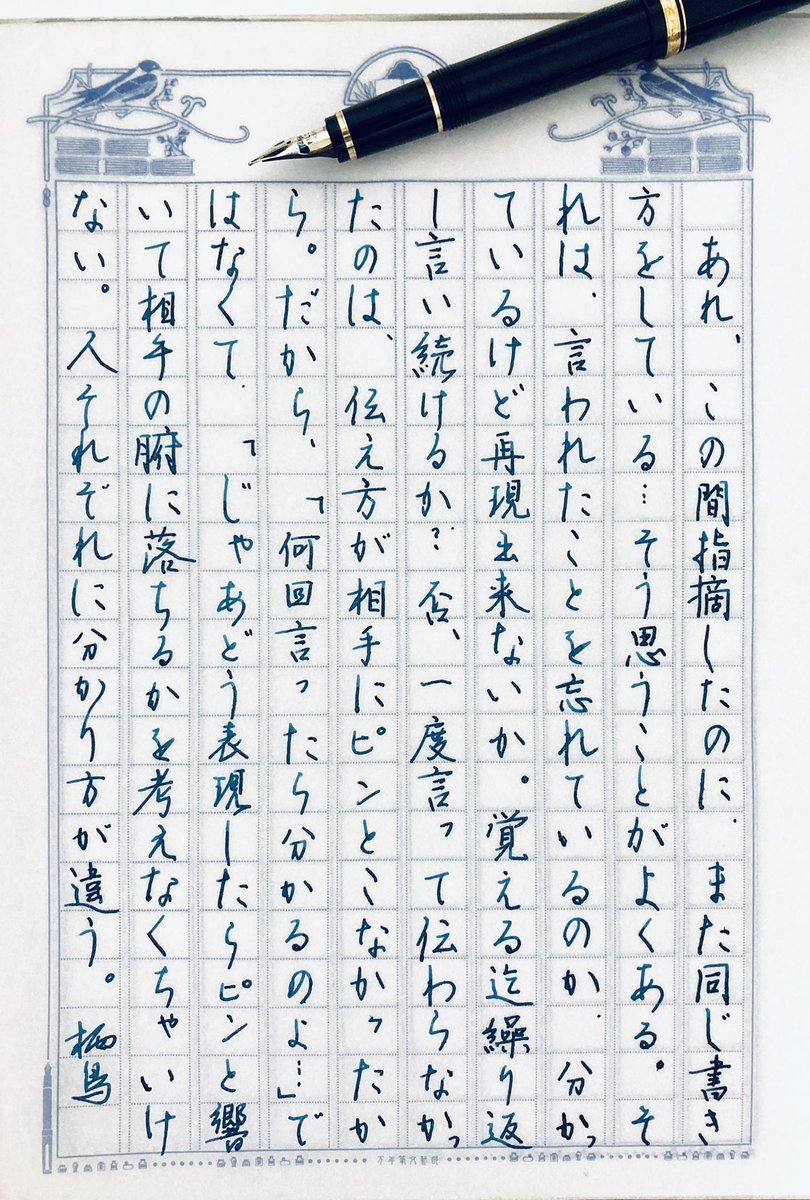 あれ、この間指摘したのに、また同じ書き
方をしている…そう思うことがよくある。そ
れは、言われたことを忘れているのか、分かっ
ているけど再現出来ないか。覚える迄繰り返
し言い続けるか？否、一度言って伝わらなかっ
たのは、伝え方が相手にピンとこなかったか
ら。だから、「何回言ったら分かるのよ…」で
はなくて、「じゃあどう表現したらピンと響
いて相手の腑に落ちるかを考えなくちゃいけ
ない。人それぞれに分かり方が違う。栖鳥